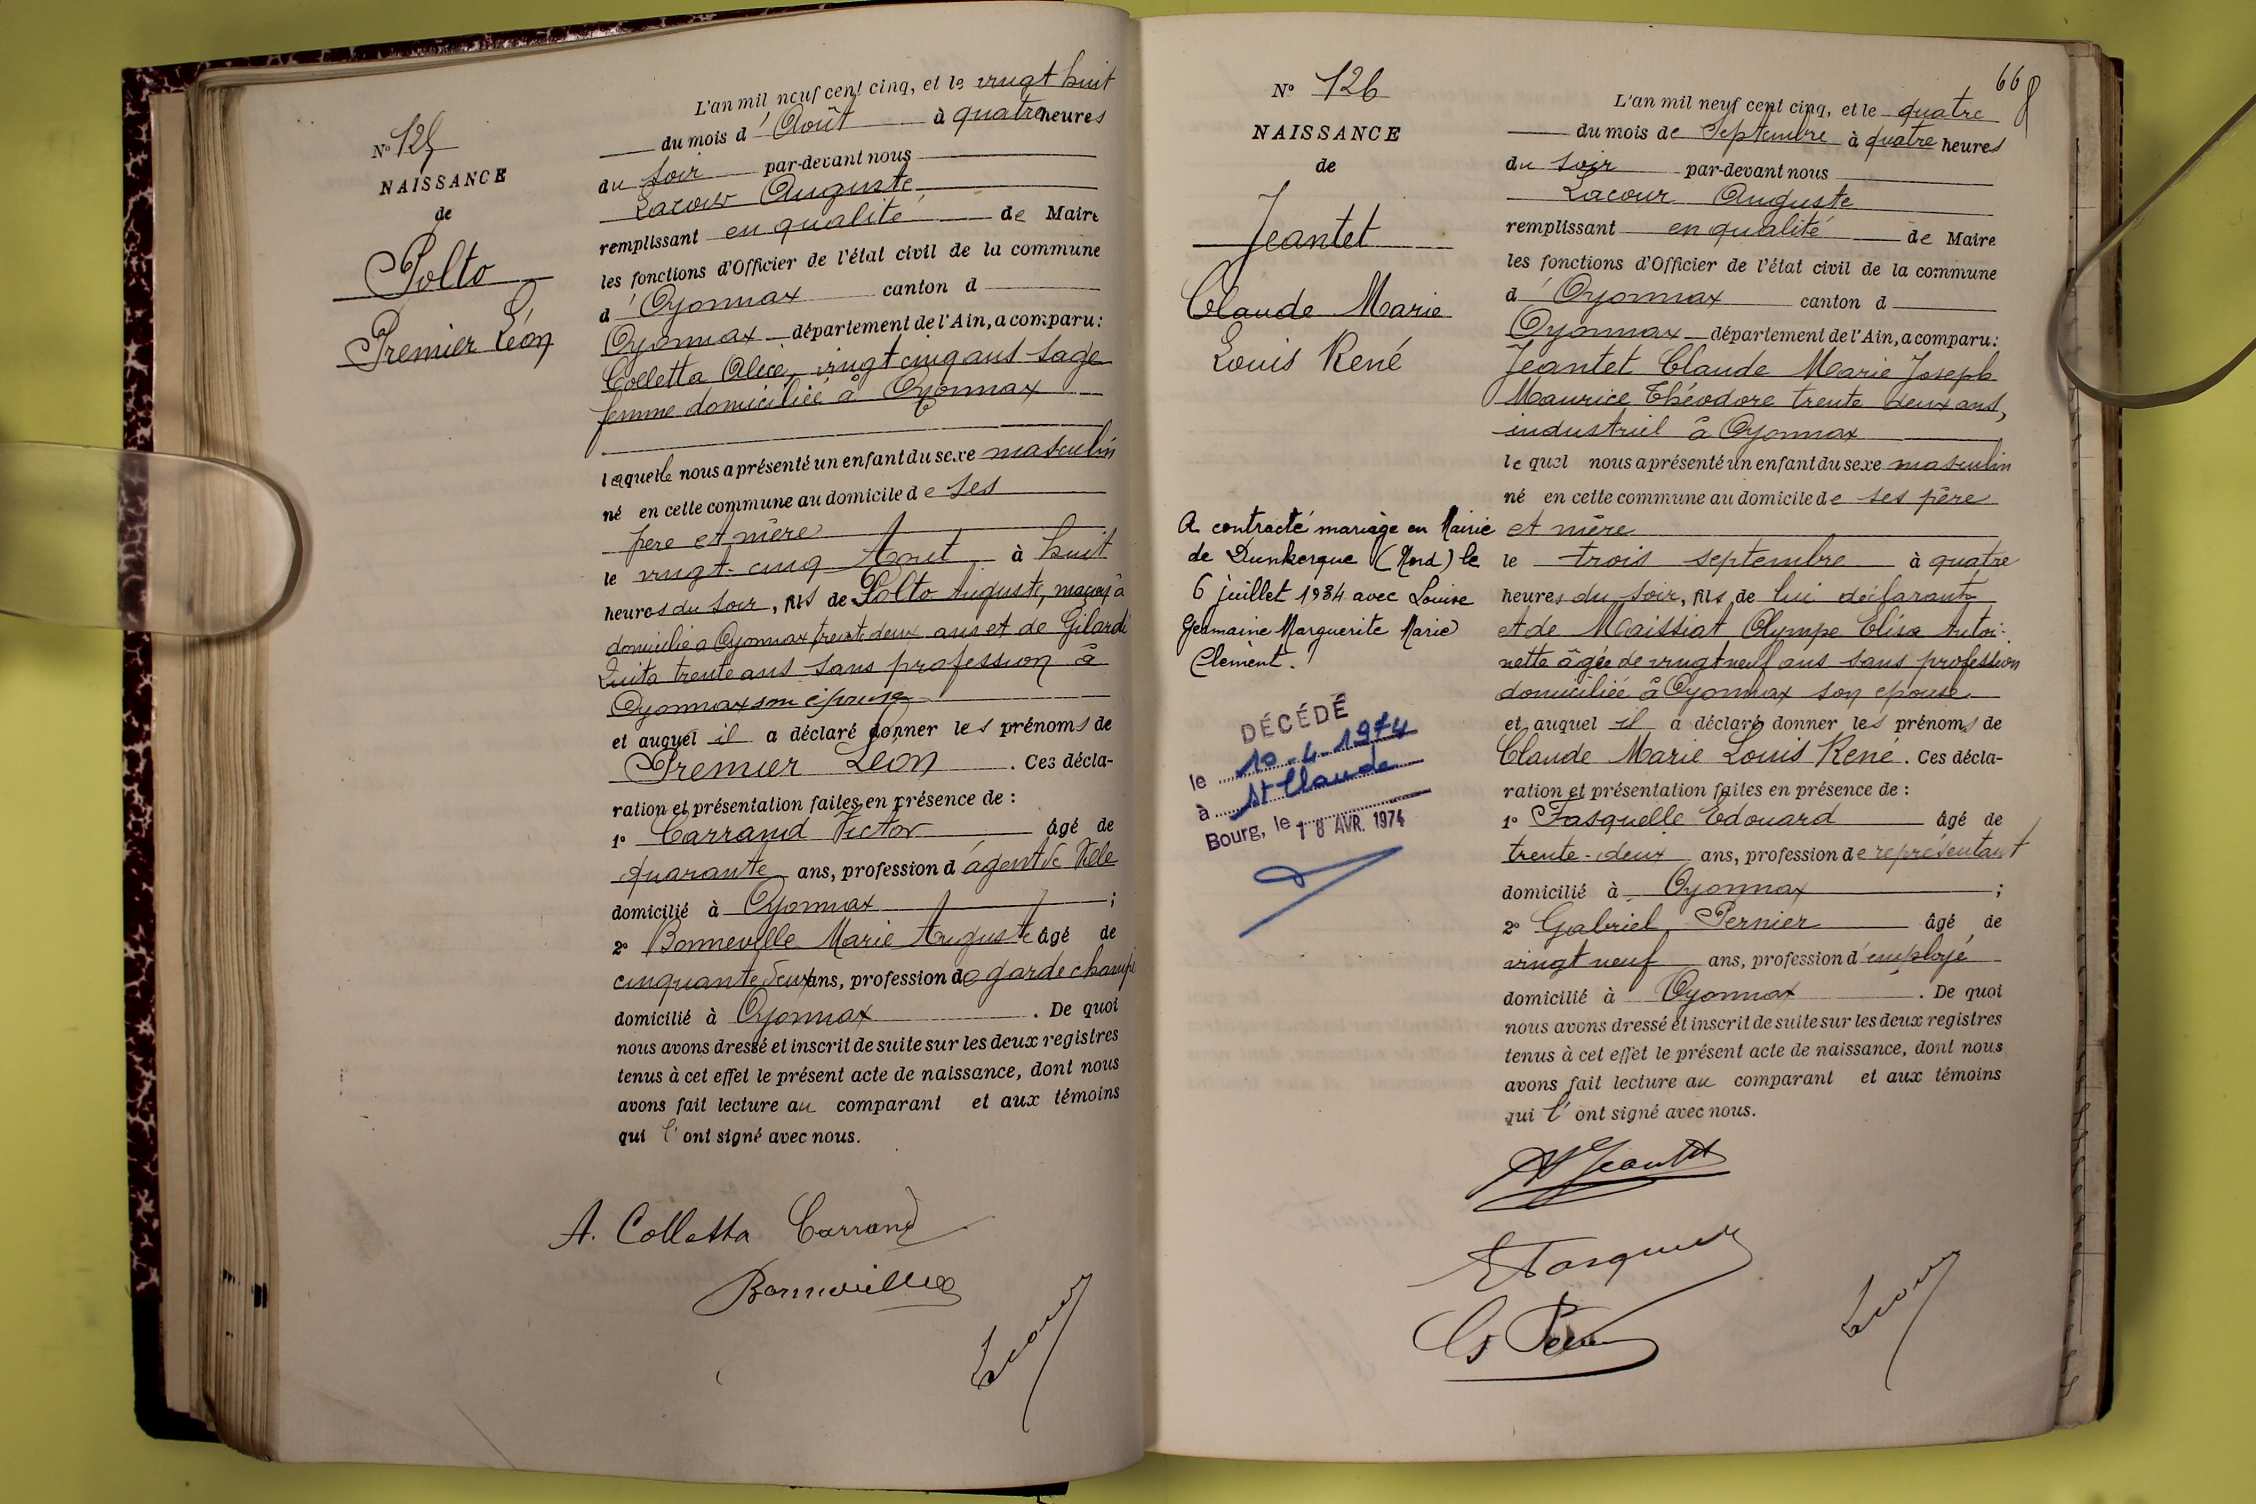 N° 125
NAISSANCE
de
Polto
Premier Léon
L'an mil neuf cent cinq, et le vingt huit
du mois d'Août à quatre heures
du soir par-devant nous
Lacour Auguste
remplissant en qualité de Maire
les fonctions d'Officier de l'état civil de la commune
d'Oyonnax canton d
Oyonnax département de l'Ain, a comparu:
Colletta Alice, vingt cinq ans sage
femme domiciliée à Oyonnax
laquelle nous a présenté un enfant du sexe masculin
né en cette commune au domicile de ses
père et mère
le vingt-cinq Aout à huit
heures du soir, fils de Polto Auguste, maçon à
domicilié a Oyonnax trente deux ans et de Gilardi
trente ans sans profession à
Oyonnax son épouse
et auquel il a déclaré donner les prénoms de
Premier Léon. Ces décla-
ration et présentation faites en présence de :
1° Carrand Victor âgé de
quarante ans, profession d'agent de Ville
domicilié à Oyonnax ;
2° Bonneville Marie Auguste âgé de
cinquante deux ans, profession de garde champ
domicilié à Oyonnax . De quoi
nous avons dressé et inscrit de suite sur les deux registres
tenus à cet effet le présent acte de naissance, dont nous
avons fait lecture au comparant et aux témoins
qui l'ont signé avec nous.
A. Colletta Carrand
Bonneville
Lacour
66
N° 126
NAISSANCE
de
Jeantet
Claude Marie
Louis René
A contracté mariage en Mairie
de Dunkerque (Nord) le
6 juillet 1934 avec Louise
Germaine Marguerite Marie
Clément.
DÉCÉDÉ
le 10-4-1974
à St Claude
Bourg, le 18 AVR. 1974
L'an mil neuf cent cinq, et le quatre
du mois de Septembre à quatre heures
du soir par-devant nous
Lacour Auguste
remplissant en qualité de Maire
les fonctions d'Officier de l'état civil de la commune
d'Oyonnax canton d
Oyonnax département de l'Ain, a comparu:
Jeantet Claude Marie Joseph
Maurice Théodore trente deux ans,
industriel à Oyonnax
lequel nous a présenté un enfant du sexe masculin
né en cette commune au domicile de ses père
et mère
le trois septembre à quatre
heures du soir, fils de lui déclarant
et de Maissiat Olympe Elisa Antoi-
nette âgée de vingt neuf ans sans profession
domiciliée à Oyonnax son epouse
et auquel il a déclaré donner les prénoms de
Claude Marie Louis René. Ces décla-
ration et présentation faites en présence de :
1° Fasquelle Edouard âgé de
trente-deux ans, profession de représentant
domicilié à Oyonnax ;
2° Gabriel Pernier âgé de
vingt neuf ans, profession d'employé
domicilié à Oyonnax . De quoi
nous avons dressé et inscrit de suite sur les deux registres
tenus à cet effet le présent acte de naissance, dont nous
avons fait lecture au comparant et aux témoins
qui l'ont signé avec nous.
Jeantet
Lacour